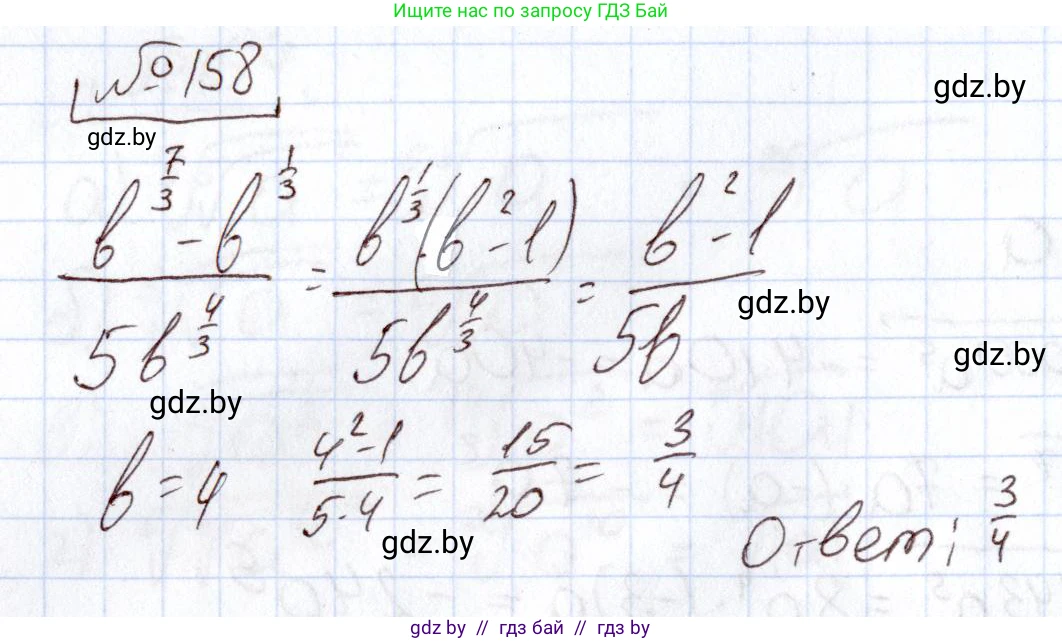 Ищите нас по запросу ГДЗ Бай
№ 158
gdz.by
gdz.by
(b^(7/3) - b^(1/3)) / (5b^(4/3)) = (b^(1/3)(b^2 - 1)) / (5b^(4/3)) = (b^2 - 1) / (5b)
gdz.by
gdz.by
gdz.by
b = 4 (4^2 - 1) / (5·4) = 15/20 = 3/4
gdz.by
Ответ: 3/4
gdz by // гдз бай // gdz by